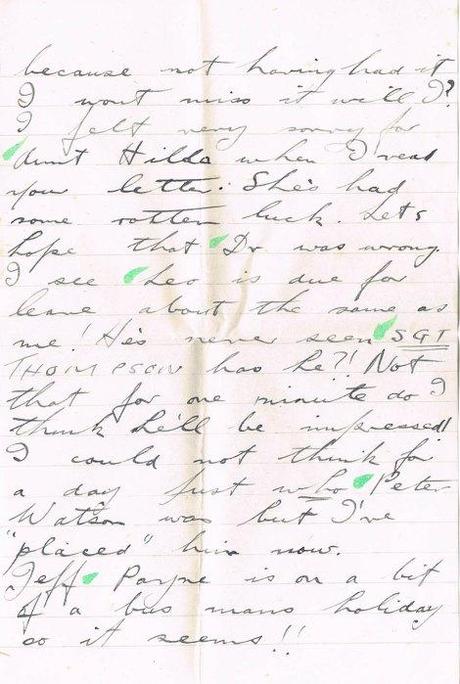 because not having had it
I wont miss it will I?
I felt very sorry for
Aunt Hilda when I read
your letter. She's had
some rotten luck. Let's
hope that Dr was wrong.
I see Leo is due for
leave about the same as
me! He's never seen SGT
THOMPSON has he?! Not
that for one minute do I
think he'll be impressed!
I could not think for
a day just who Peter
Watson was but I've
"placed" him now.
Jeff Payne is on a bit
of a bus mans holiday
so it seems!!